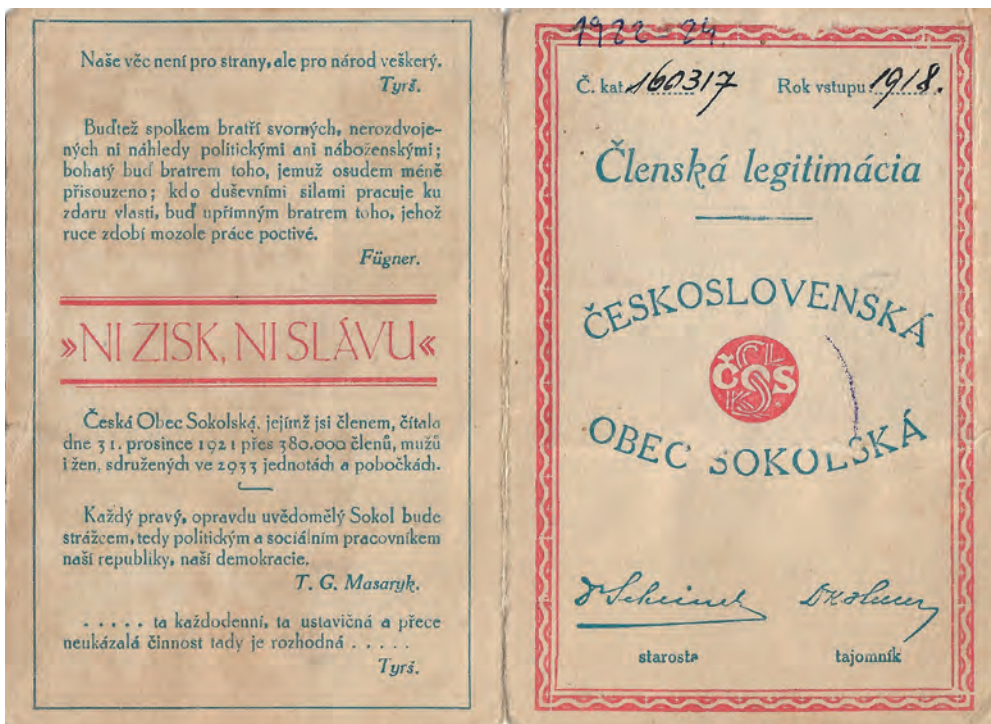 Naše věc není pro strany, ale pro národ veškerý.
Tyrš.
Buďtež spolkem bratří svorných, nerozdvoje-
ných ni náhledy politickými ani náboženskými;
bohatý buď bratrem toho, jemuž osudem méně
přisouzeno; kdo duševními silami pracuje ku
zdaru vlasti, buď upřímným bratrem toho, jehož
ruce zdobí mozole práce poctivé.
Fügner.
»NI ZISK, NI SLÁVU«
Česká Obec Sokolská, jejímž jsi členem, čítala
dne 31. prosince 1921 přes 380.000 členů, mužů
i žen, sdružených ve 2933 jednotách a pobočkách.
Každý pravý, opravdu uvědomělý Sokol bude
strážcem, tedy politickým a sociálním pracovníkem
naší republiky, naší demokracie.
T. G. Masaryk.
. . . . . ta každodenní, ta ustavičná a přece
neukázalá činnost tady je rozhodná . . . . .
Tyrš.
1922-24.
Č. kat. 160317 Rok vstupu 1918.
Členská legitimácia
ČESKOSLOVENSKÁ
ČOS
OBEC SOKOLSKÁ
Dr Scheiner
starosta tajomník